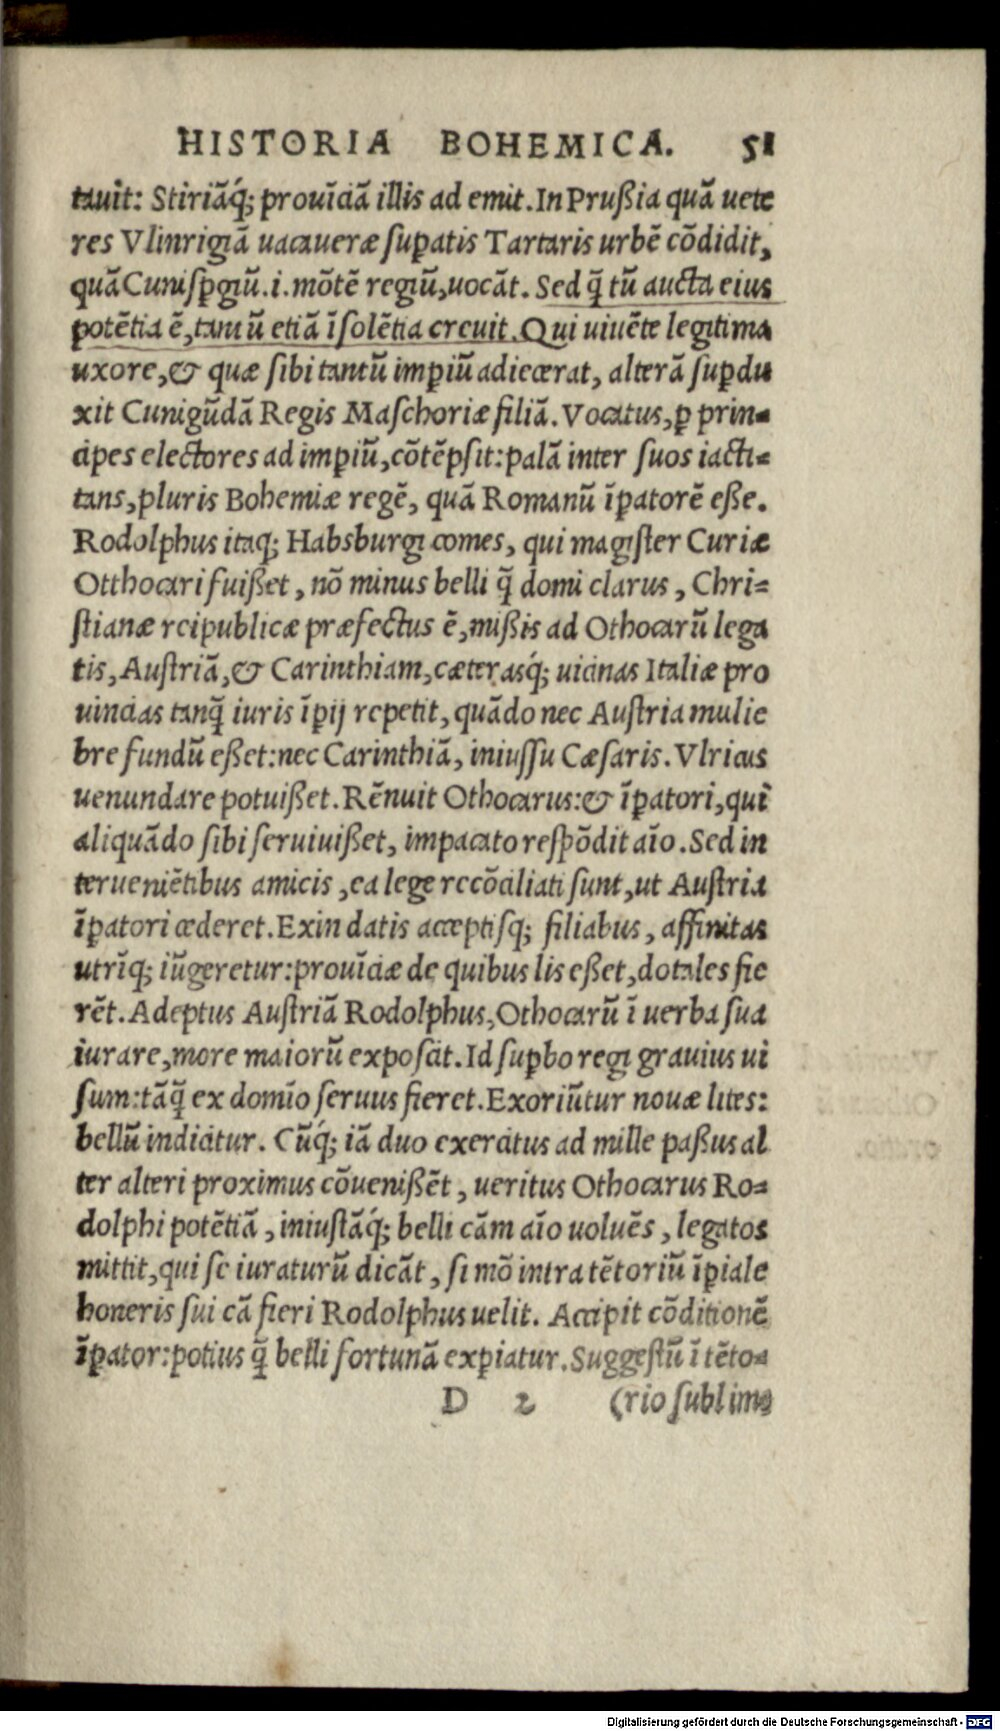 HISTORIA BOHEMICA. 51
tauit: Stiriāq́; prouīciā illis ad emit. In Prußia quā uete
res Vlinrigiā uacaueræ suꝑatis Tartaris urbē cōdidit,
quā Cunisꝑgiū .i. mōtē regiū, uocāt. Sed q̄ tū aucta eius
potētia ē, tam ū etiā īsolētia creuit. Qui uiuēte legitima
uxore, & quæ sibi tantū imꝑiū adiecerat, alterā suꝑdu
xit Cunigūdā Regis Maschoriæ filiā. Vocatus, ꝑ prin=
cipes electores ad imꝑiū, cōtēpsit: palā inter suos iacti=
tans, pluris Bohemiæ regē, quā Romanū īꝑatorē eße.
Rodolphus itaq; Habsburgi comes, qui magister Curiæ
Otthocari fuißet, nō minus belli q̄ domi clarus, Chri=
stianæ reipublicæ præfectus ē, mißis ad Othocarū lega
tis, Austriā, & Carinthiam, cæterasq́; uicinas Italiæ pro
uincias tanq̄ iuris īꝑij repetit, quādo nec Austria mulie
bre fundū eßet: nec Carinthiā, iniussu Cæsaris. Vlricus
uenundare potuißet. Rēnuit Othocarus: & īꝑatori, qui
aliquādo sibi seruiuißet, impacato respōdit aīo. Sed in
terueniētibus amicis, ea lege recōciliati sunt, ut Austria
īꝑatori cederet. Exin datis acceptisq; filiabus, affinitas
utrīq; iūgeretur: prouīciæ de quibus lis eßet, dotales fie
rēt. Adeptus Austriā Rodolphus, Othocarū ī uerba sua
iurare, more maiorū exposcit. Id suꝑbo regi grauius ui
sum: tāq̄ ex domīo seruus fieret. Exoriūtur nouæ lites:
bellū indicitur. Cūq́; iā duo exercitus ad mille paßus al
ter alteri proximus cōuenißēt, ueritus Othocarus Ro=
dolphi potētiā, iniustāq́; belli cām aīo uoluēs, legatos
mittit, qui se iuraturū dicāt, si mō intra tētoriū īꝑiale
honeris sui cā fieri Rodolphus uelit. Accipit cōditionē
īꝑator: potius q̄ belli fortunā exꝑiatur. Suggestū ī tēto=
D 2 (rio sublime
Digitalisierung gefördert durch die Deutsche Forschungsgemeinschaft - DFG